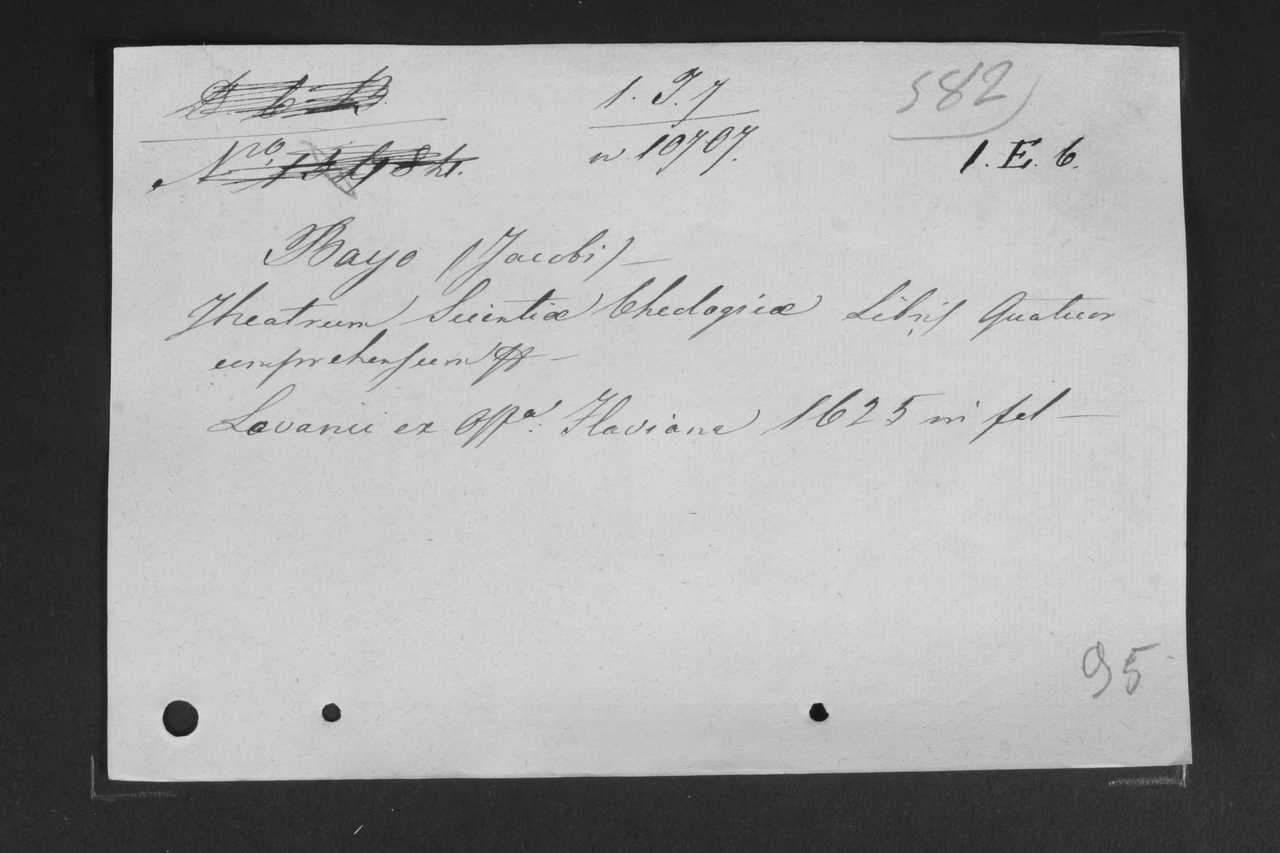 1. T. 7
582
Nro
n 10707.
1. E. 6.
Bayo (Jacobi) —
Theatrum Scientiæ Theologicæ Libris Quatuor
comprehensum —
Lovanii ex Offa. Flaviana 1625 in fol —
95